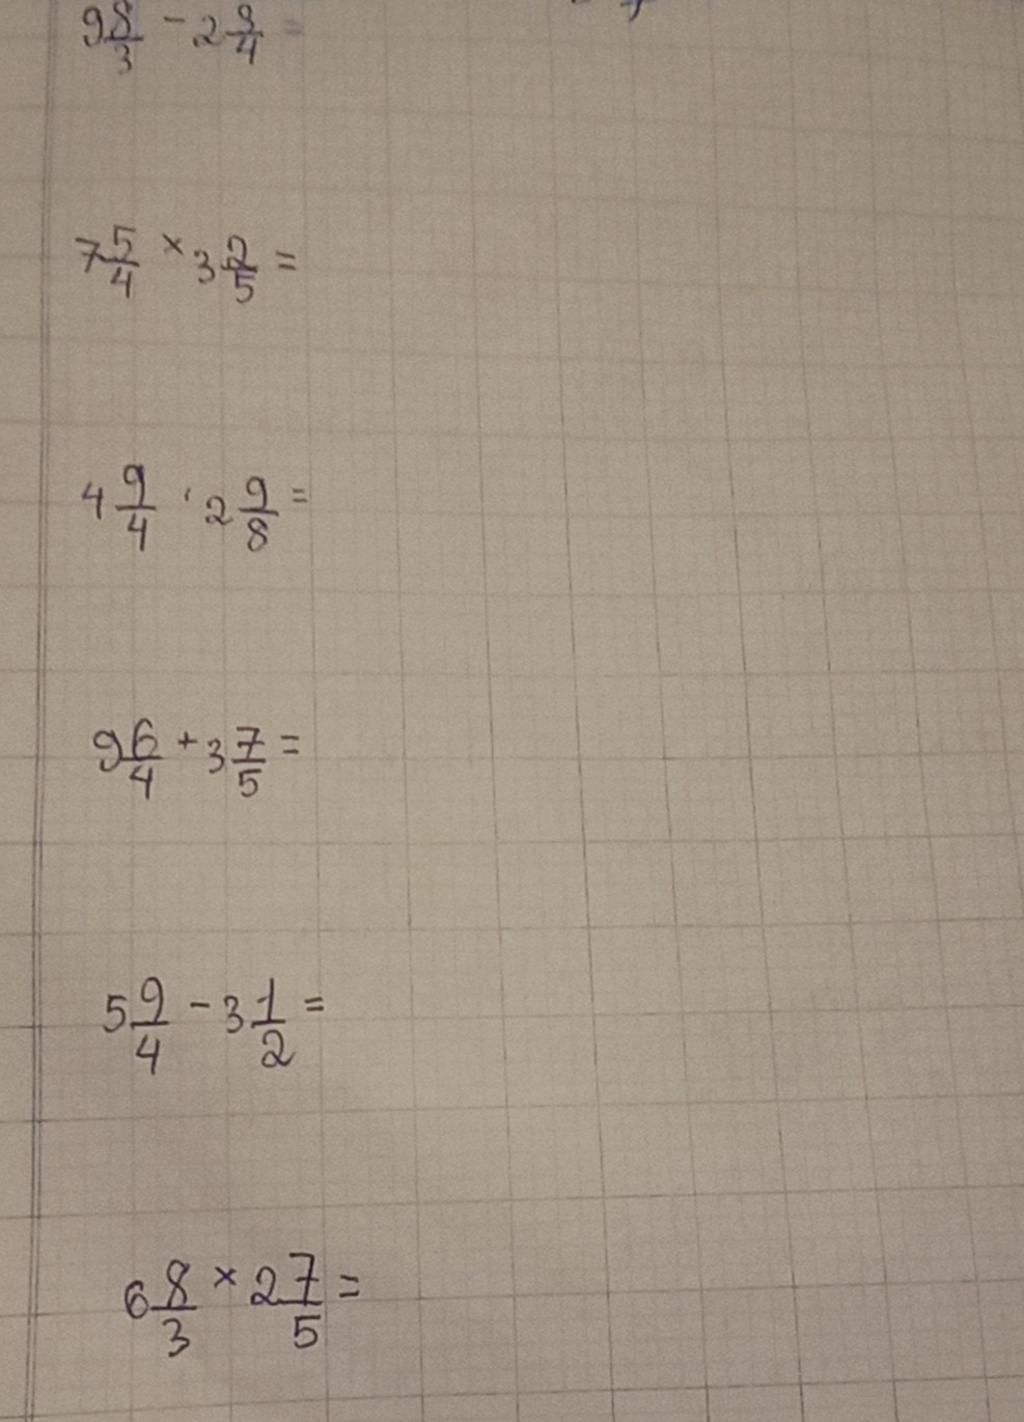 9 8/3 - 2 9/4 =
7 5/4 × 3 2/5 =
4 9/4 · 2 9/8 =
9 6/4 + 3 7/5 =
5 9/4 - 3 1/2 =
6 8/3 × 2 7/5 =